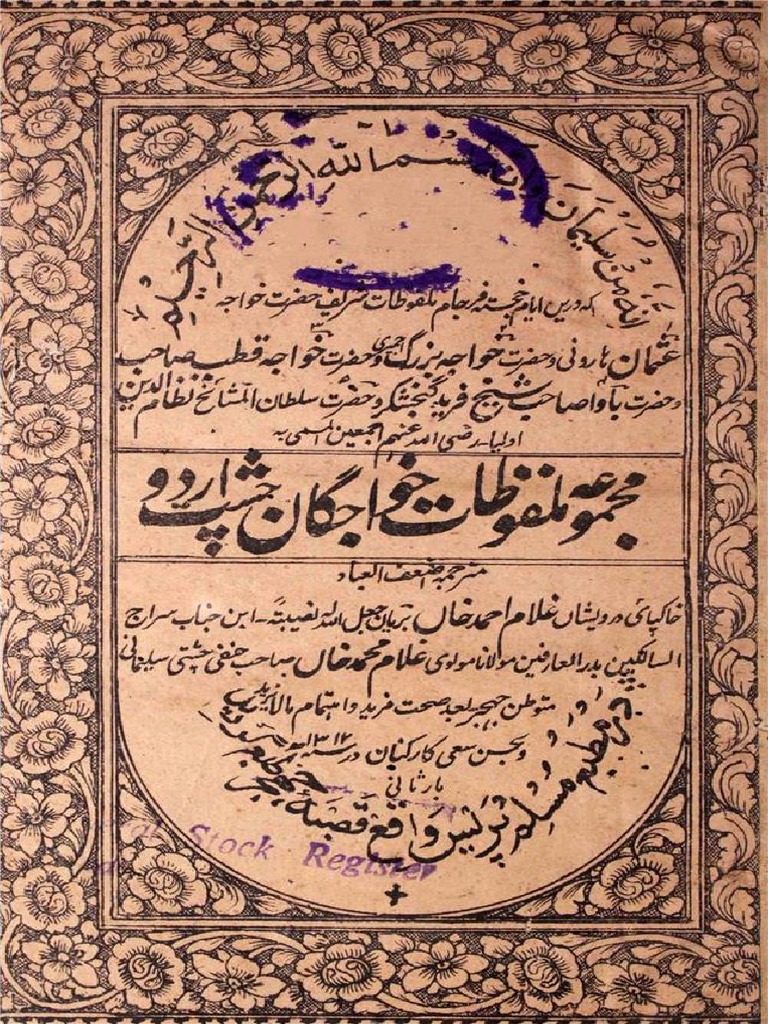 إِنَّهُ مِنْ سُلَيْمَانَ وَإِنَّهُ بسم الله الرحمن الرحیم
که درین ایام خجسته فرجام ملفوظات شریف حضرت خواجه
عثمان ہارونی و حضرت خواجہ بزرگ اجمیری و حضرت خواجہ قطب صاحب
و حضرت باواصاحب شیخ فرید گنجشکر و حضرت سلطان المشائخ نظام الدین
اولیاء رضی اللہ عنہم اجمعین المسمی بہ
مجموعہ ملفوظات خواجگان چشت اردو
مترجمہ اضعف العباد
خاکپائے درویشاں غلام احمد خاں بریاں جعل اللہ نصیبتہ۔ ابن جناب سراج
السالکین بدر العارفین مولانا مولوی غلام محمد خاں صاحب حنفی چشتی سلیمانی
متوطن جھجر بعد صحت فرید و اہتمام بالا
و بحسن سعی کارکنان در سنہ ۱۳۱۷ ہجری
بار ثانی
در مطبع مسلم پریس واقع قصبہ جھجر
Stock Register